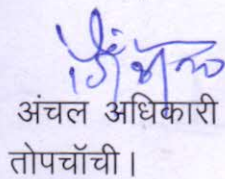 अंचल अधिकारी
तोपचॉची।